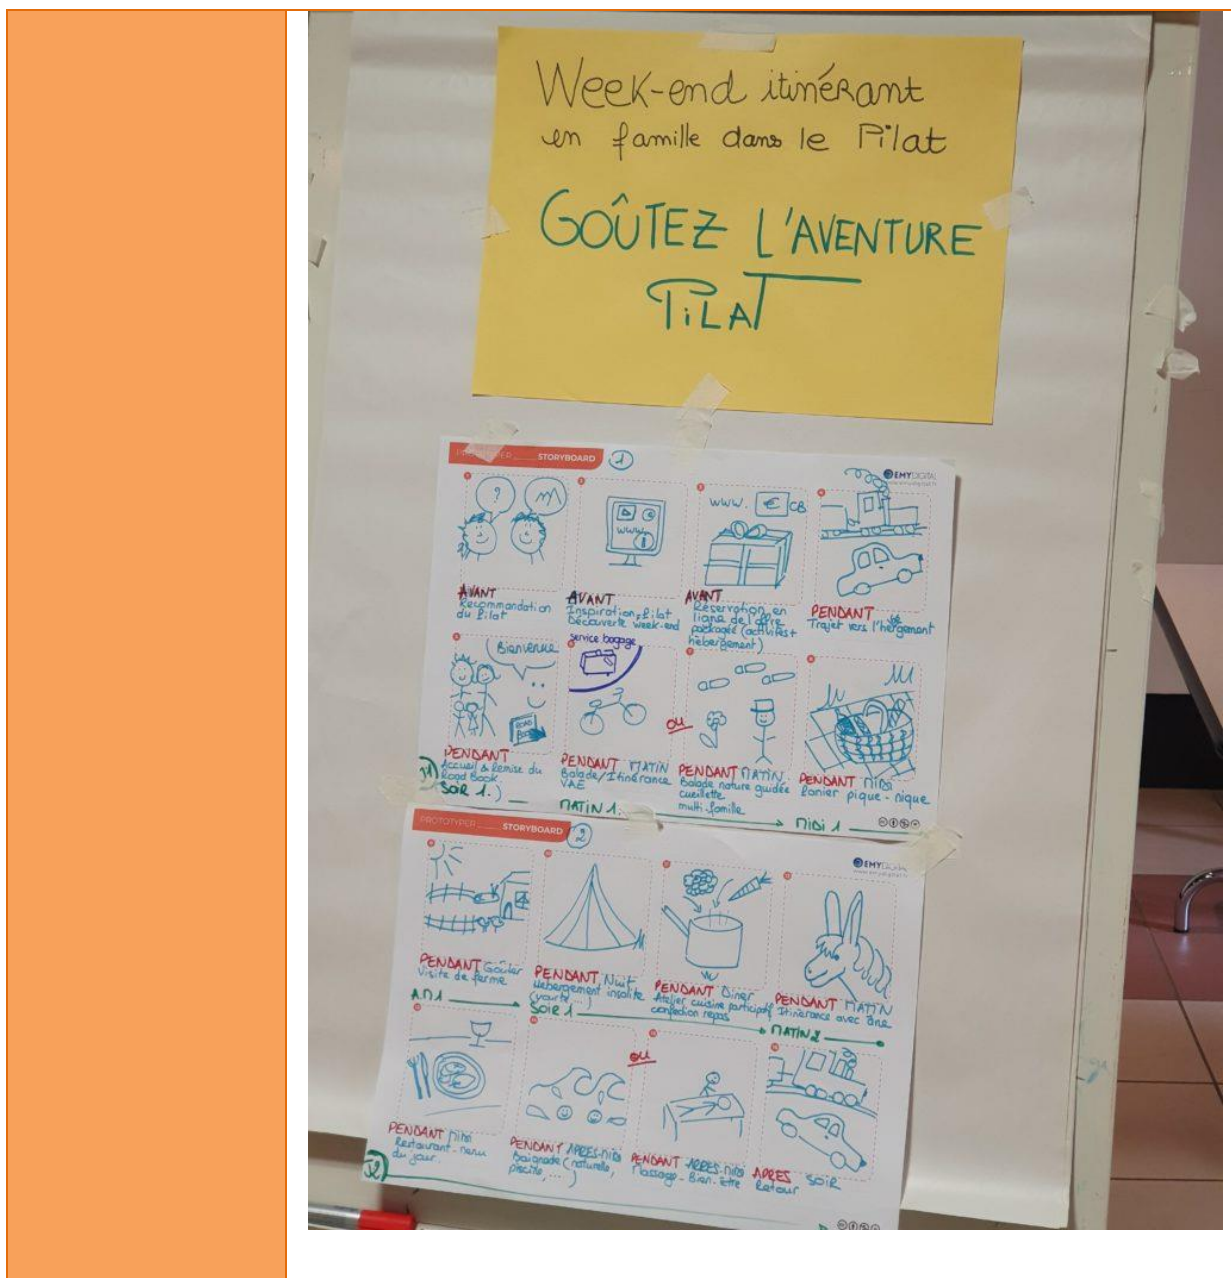 Week-end itinérant
en famille dans le Pilat
GOÛTEZ L'AVENTURE
PiLAT
PROTOTYPER STORYBOARD 1
EMYDIGITAL
1
?
AVANT
Recommandation
du Pilat
2
WWW.
AVANT
Inspiration Pilat
Découverte week-end
3
WWW. € CB
AVANT
Réservation en
ligne de l'offre
packagée (activités +
hébergement)
4
PENDANT
Trajet vers l'hébergement
5
Bienvenue
ROAD
BOOK
PENDANT
Accueil & Remise du
Road Book
SOIR 1
service bagage
PENDANT MATIN
Balade/Itinérance
VAE
MATIN 1
ou
PENDANT MATIN
Balade nature guidée
cueillette
multi-famille
8
PENDANT MIDI
Panier pique-nique
MIDI 1
PROTOTYPER STORYBOARD 2
EMYDIGITAL
PENDANT Goûter
Visite de ferme
A.M 1
PENDANT Nuit
Hébergement insolite
(yourte...)
SOIR 1
PENDANT Diner
Atelier cuisine participatif
confection repas
PENDANT MATIN
Itinérance avec âne
MATIN 2
PENDANT MIDI
Restaurant-menu
du jour.
J2
PENDANT APRES-MIDI
Baignade (naturelle,
piscine, ...)
ou
PENDANT APRES-MIDI
Massage - Bien-être
APRES SOIR
Retour